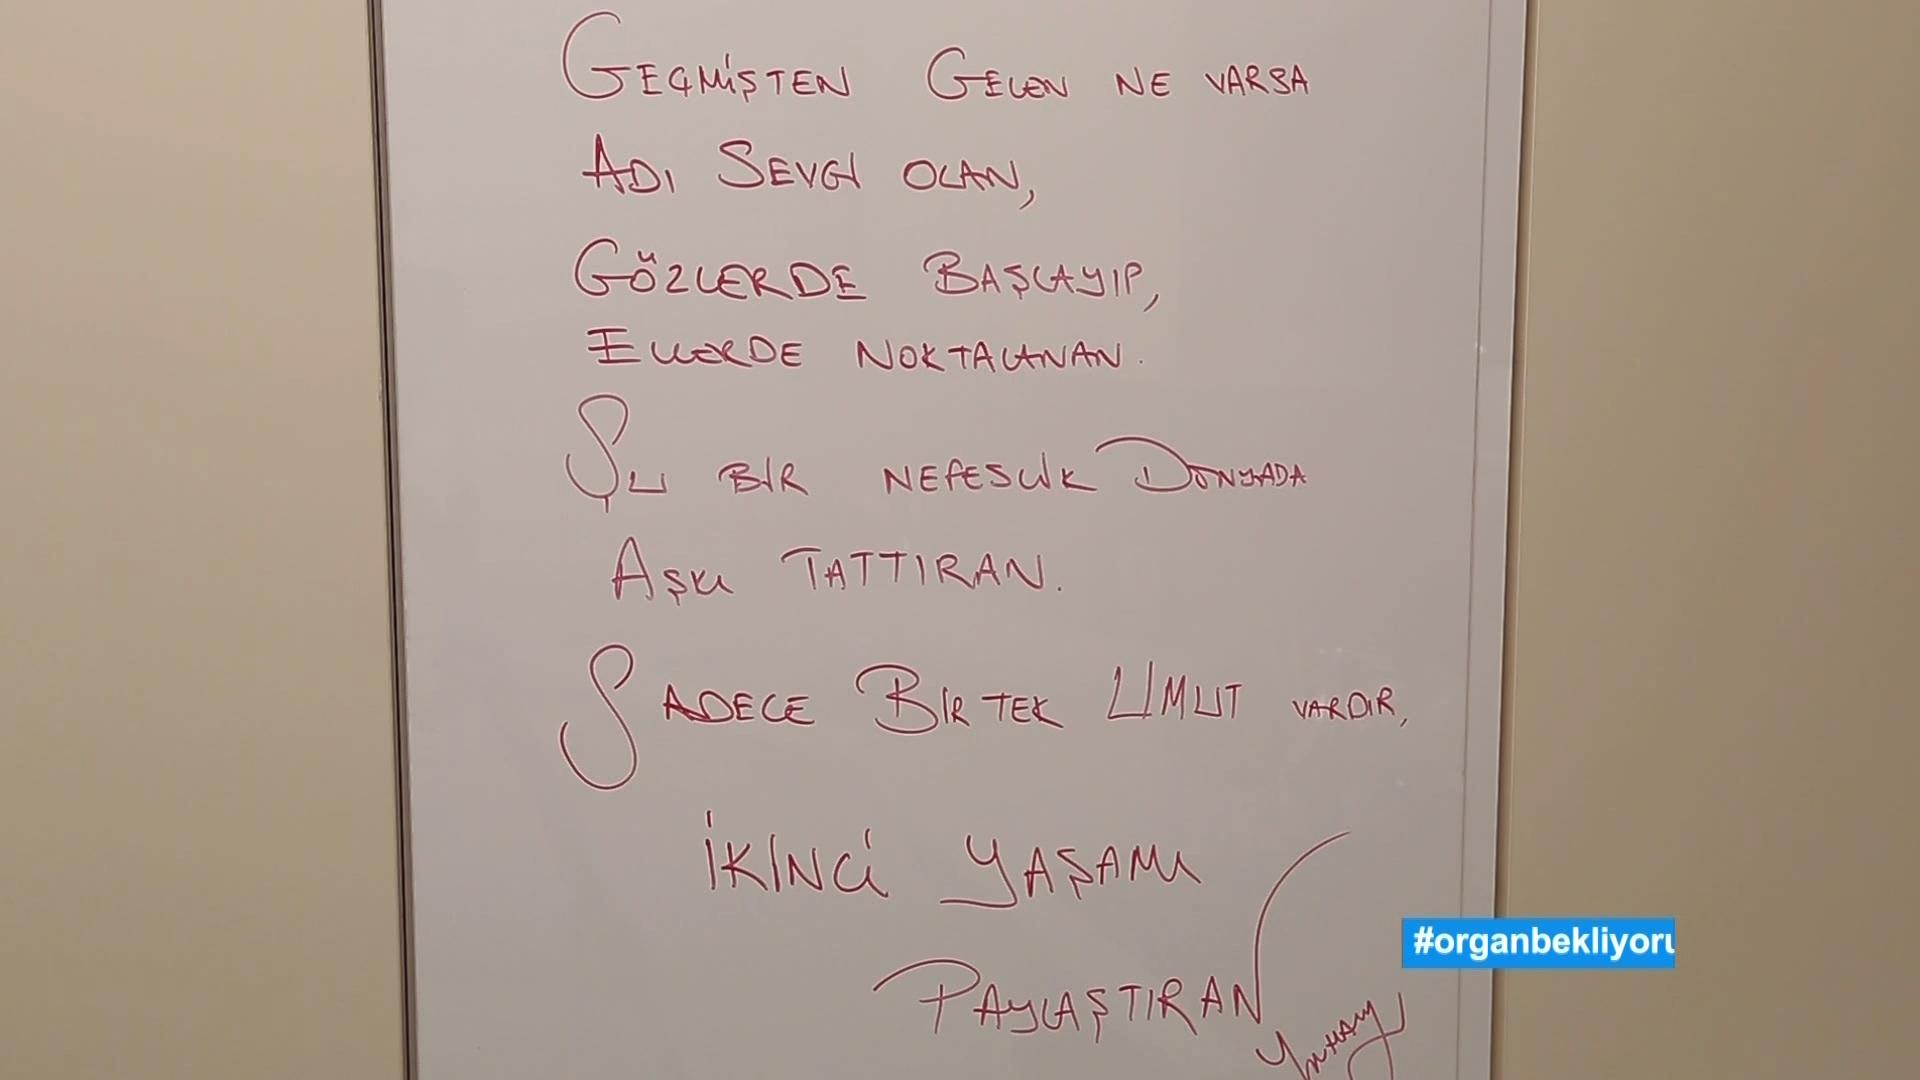 GEÇMİŞTEN GELEN NE VARSA
ADI SEVGİ OLAN,
GÖZLERDE BAŞLAYIP,
ELLERDE NOKTALANAN.
ŞU BİR NEFESLİK DÜNYADA
AŞKI TATTIRAN.
SADECE BİR TEK UMUT VARDIR,
İKİNCİ YAŞAMI
PAYLAŞTIRAN
#organbekliyoru